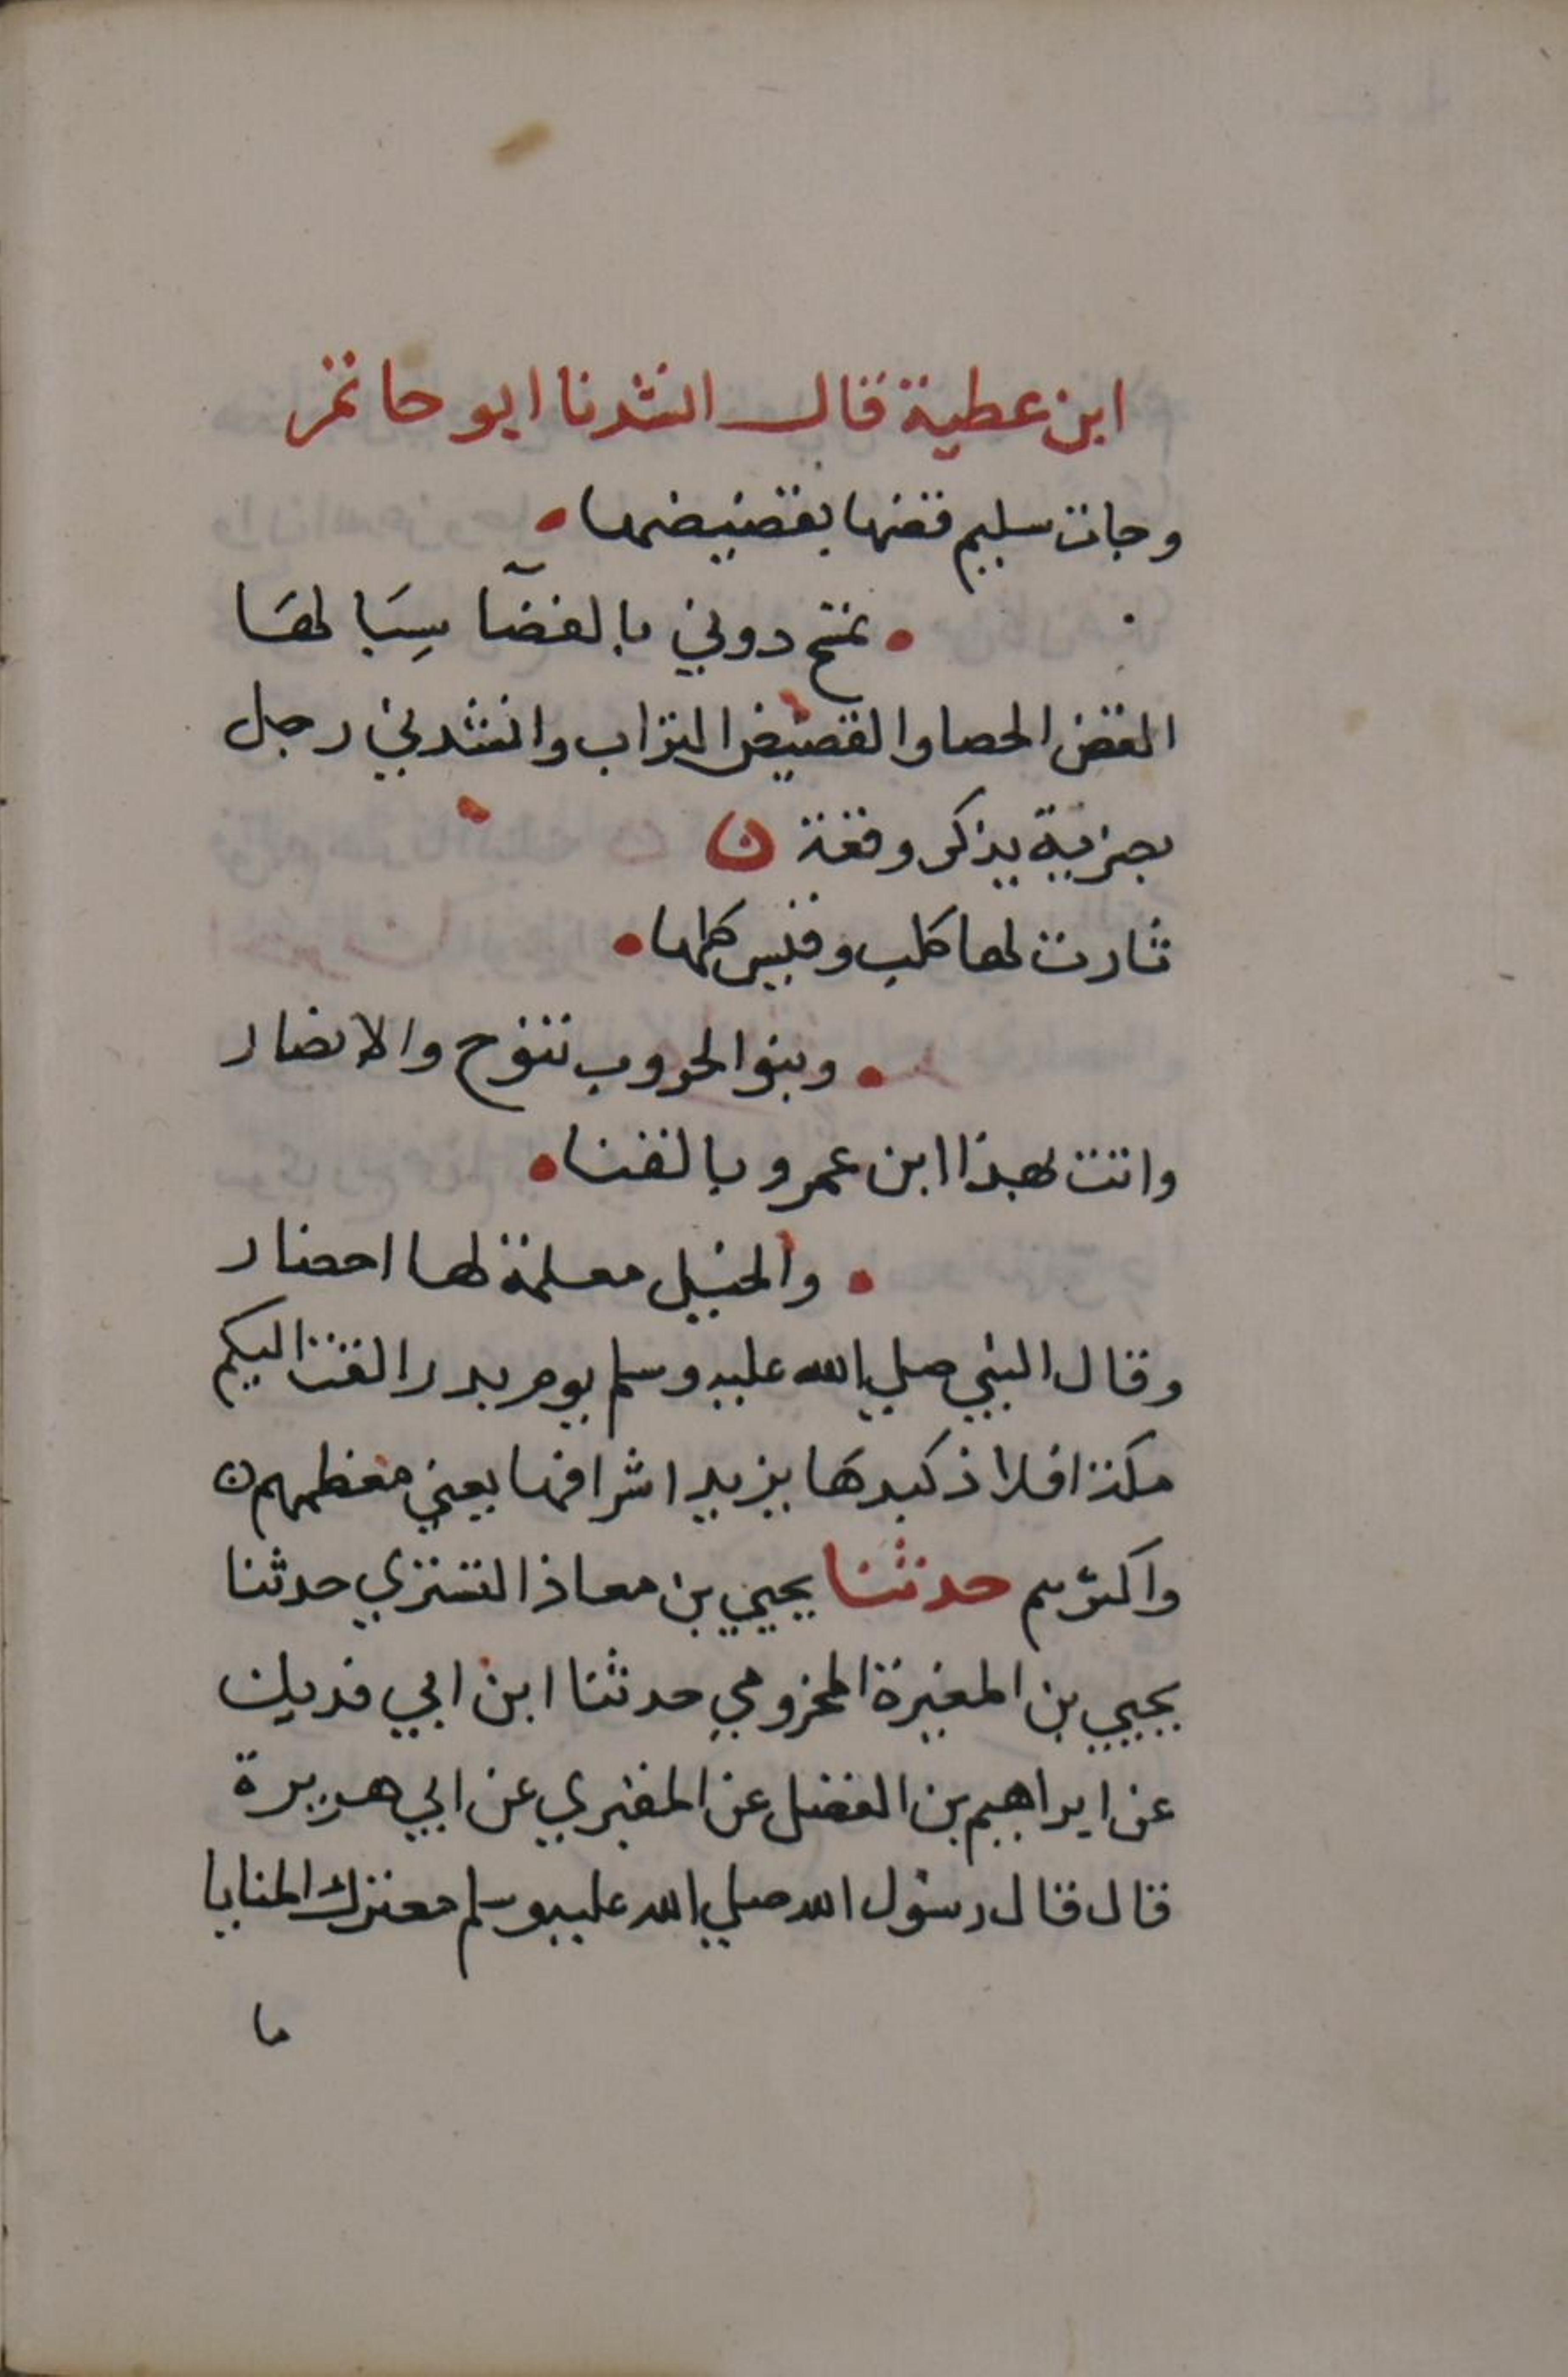 ابن عطية قال انشدنا ابو حاتم
وجات سليم قضها بقضيضها
تمتح دوني بالفضآ سِبَا لهَا
القض الحصا والقضيض التراب وانشدني رجل
يذكر وقعة ن
ثارت لها كلب وقيس كلها
وبنو الحروب تنوح والانصار
واتت لهذا ابن عمرو بالقنا
والخيل معلمة لها احضار
وقال النبي صلي الله عليه وسلم يوم بدر القت اليكم
مكة افلاذ كبدها يزيد اشرافها يعني معظمهم ن
واكثرهم حدثنا يحيي بن معاذ التستري حدثنا
يحيي بن المغيرة المخزومي حدثنا ابن ابي فديك
عن ابراهيم بن الفضل عن المقبري عن ابي هريرة
قال قال رسول الله صلي الله عليه وسلم معترك المنايا
ما